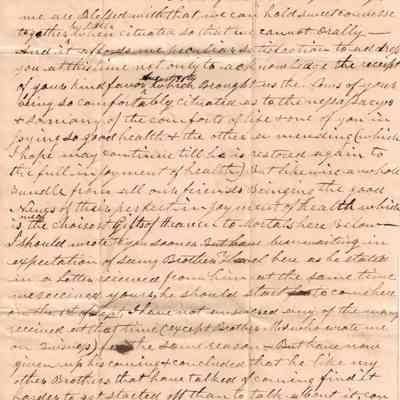 me are Blessed with that we can hold sweet converse
together by letter when cituated so that we cannot Orally –
And it affords me peculiar satisfaction to address
you at this time not only to acknowledge the receipt
of your kind favor Aug which brought us the News of your
being so comfortably cituated as to the nessa
& so many of the comforts of life & one of you in
joying so good health & the other so mending (which
I hope may continue till he is restored again to
the full injoyment of health) But likewise a whole
Bundle from all our friends Bringing the good
News of their perfect injoyment of health which
is the choisest Gifts of Heaven to Mortals here below –
I should wrote to you sooner But have been waiting in
expectation of seeing Brother here as he stated
in a letter received from him at the same time
we received yours, he should start to come here
on the 1st of Sept. I have not answered any of the many
received at that time (except Brother who wrote me
on ) for the same reason – But have now
given up his coming & concluded that he like my
other Brothers that have talked of coming find it
harder to get started off than to talk about it, can